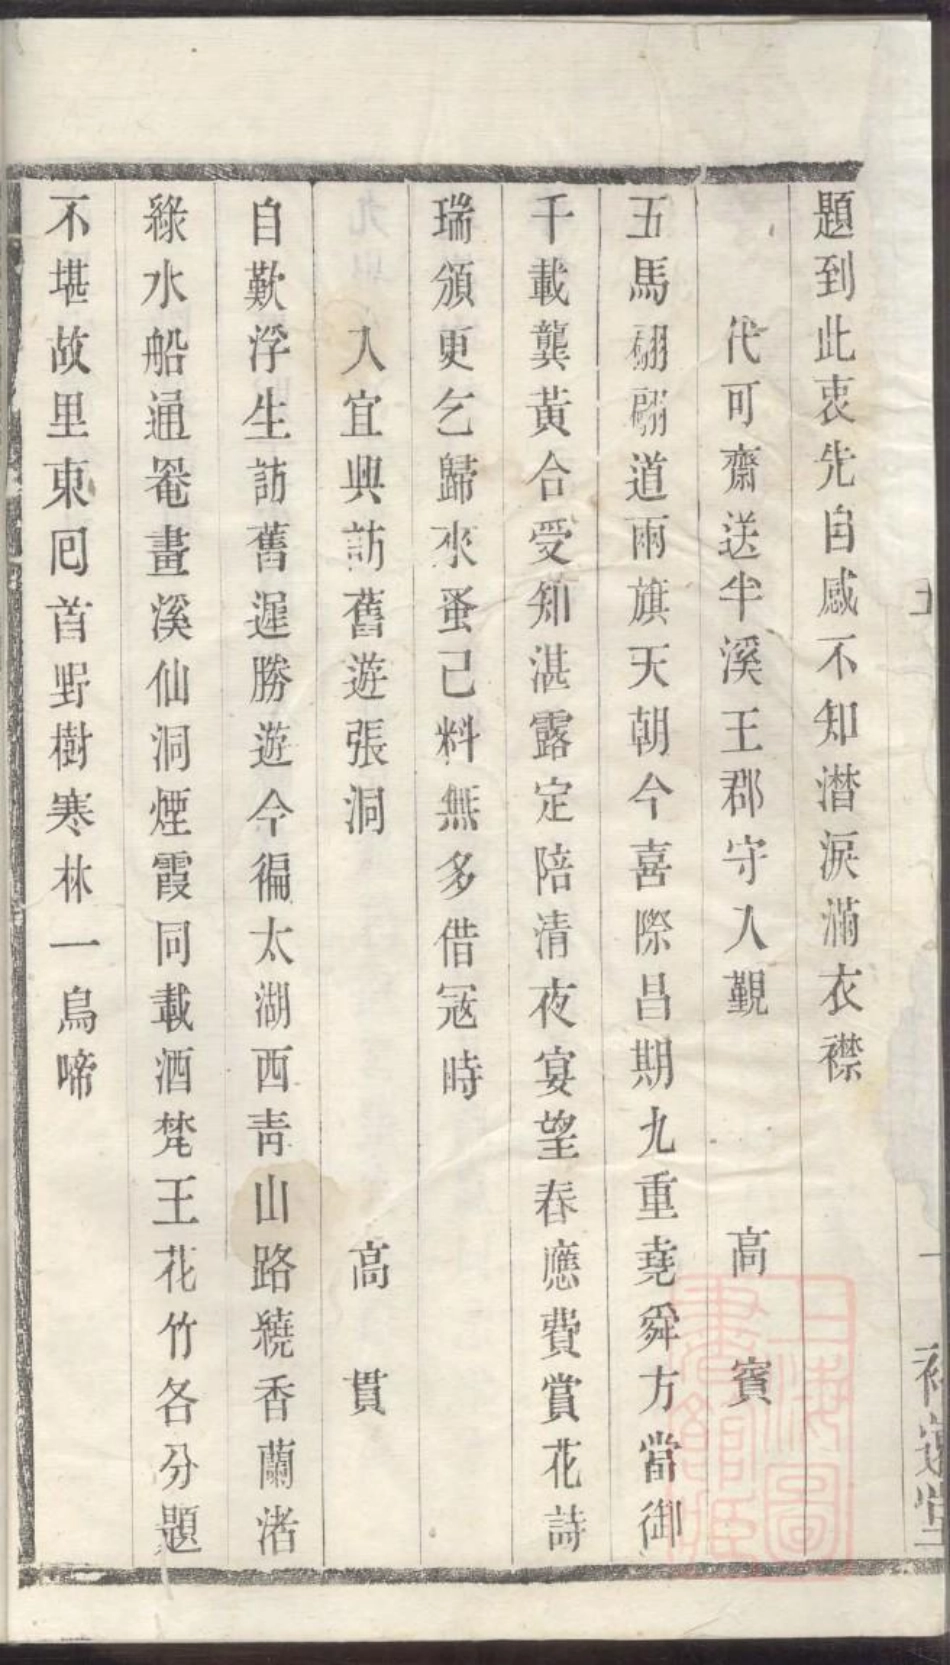 題到此衷先自感不知潛淚滿衣襟
代可齋送半溪王郡守入覲 高賓
五馬翩翩道兩旗天朝今喜際昌期九重堯舜方當御
千載龔黃合受知湛露定陪清夜宴望春應費賞花詩
瑞頒更乞歸來蚤已料無多借冦時
入宜興訪舊遊張洞 高貫
自歎浮生訪舊遲勝遊今徧太湖西青山路繞香蘭渚
綠水船通罨畫溪仙洞煙霞同載酒梵王花竹各分題
不堪故里東囘首野樹寒林一鳥啼